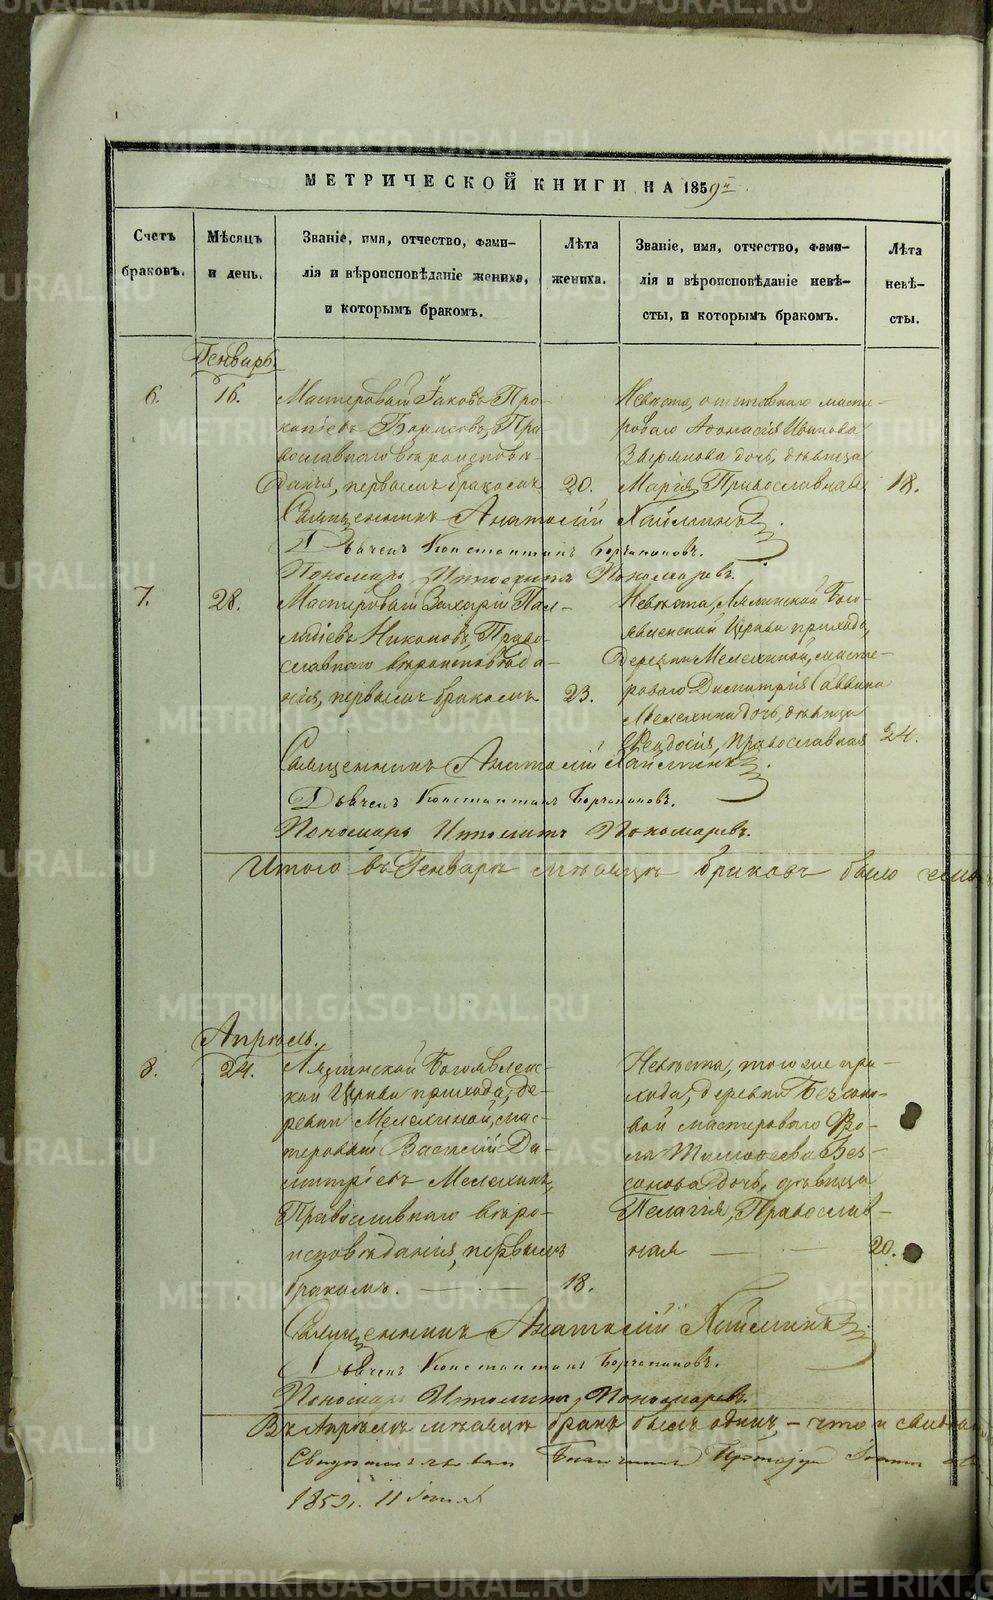 МЕТРИЧЕСКОЙ КНИГИ НА 1859й
Счетъ браковъ.
Мѣсяцъ и день.
Званіе, имя, отчество, фами-
лія и вѣроисповѣданіе жениха,
и которымъ бракомъ.
Лѣта жениха.
Званіе, имя, отчество, фами-
лія и вѣроисповѣданіе невѣ-
сты, и которымъ бракомъ.
Лѣта невѣ-
сты.
Генварь.
6. 16.
Мастеровый Іаковъ Про-
копіевъ Борисовъ, Пра-
вославнаго вѣроисповѣ-
данія, первымъ бракомъ 20.
Невѣста, отставнаго масте-
роваго Аѳанасія Иванова
Звѣрянова дочь, дѣвица
Марія, Православная 18.
Священникъ Анатолій Хаймин
Дьячекъ Константинъ
Пономарь Ипполитъ Пономаревъ.
7. 28.
Мастеровый Захарій Пал-
ладіевъ Никоновъ, Право-
славнаго вѣроисповѣда-
нія, первымъ бракомъ 23.
Невѣста, Лялинской Бого-
явленской Церкви прихода,
деревни Мелехиной, масте-
роваго Димитрія Саввина
Мелехина дочь, дѣвица
Ѳеодосія, Православная 24.
Священникъ Анатолій
Дьячекъ Константинъ
Пономарь Ипполитъ Пономаревъ.
Итого въ Генварѣ мѣсяцѣ браковъ было
Апрѣль.
8. 24.
Лялинской Богоявлен-
ской Церкви прихода, де-
ревни Мелехиной, мас-
теровый Василій Ди-
митріевъ Мелехинъ,
Православнаго вѣро-
исповѣданія, первымъ
бракомъ. 18.
Невѣста, того же при-
хода, деревни Безсоно-
вой мастероваго Фро-
ла Тимоѳеева Без-
сонова дочь, дѣвица
Пелагія, Православ-
ная 20.
Священникъ Анатолій
Дьячекъ Константинъ
Пономарь Ипполитъ Пономаревъ.
Въ Апрѣлѣ мѣсяцѣ бракъ былъ одинъ, – что и
1859. 11
METRIKI.GASO-URAL.RU